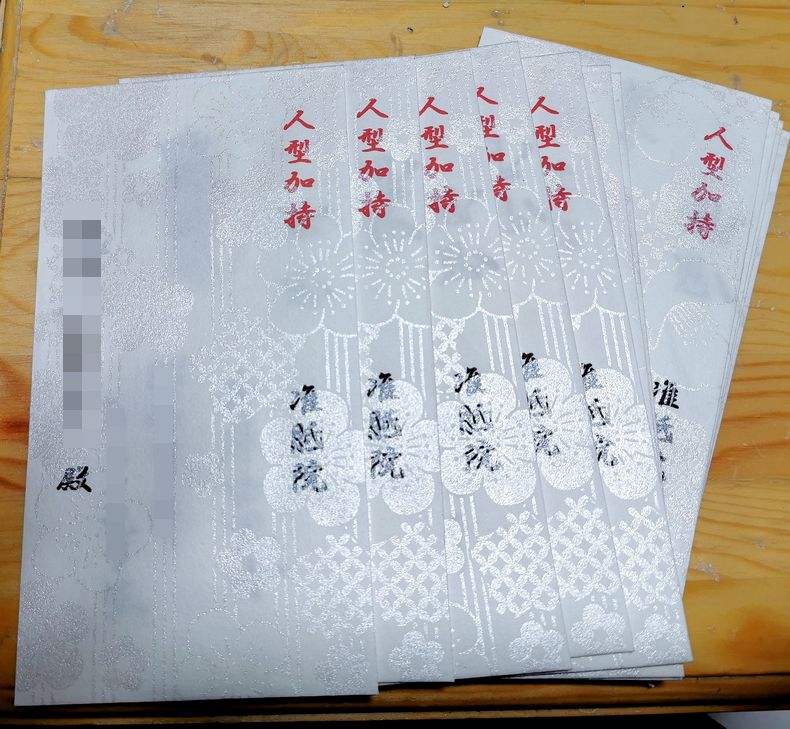 人型加持
准胝院
殿
人型加持
准胝院
人型加持
准胝院
人型加持
准胝院
人型加持
准胝院
人型加持
准胝